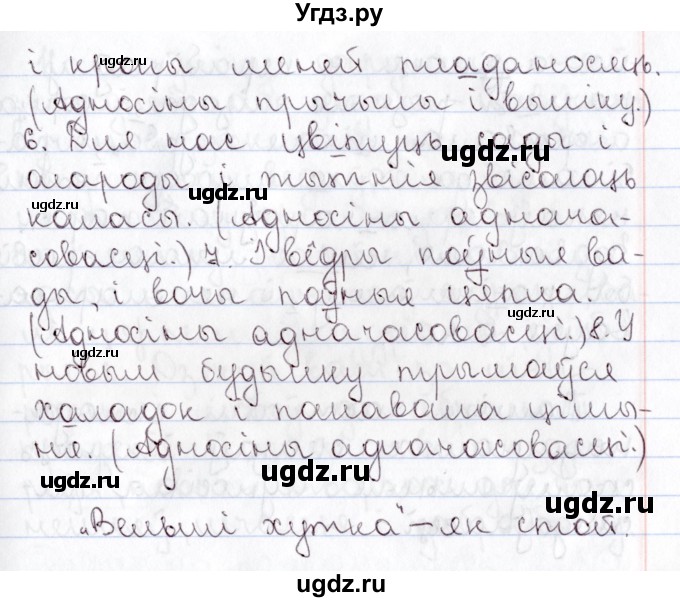 Угдз.ру
і кроны меней пладаносяць.
(Адносіны прычыны і выніку.)
6. Для нас цвітуць сады і
агароды і жытнія звісаюць
каласы. (Адносіны адначасовасці.)
совасці.) 7. І вёдры поўныя ва-
ды, і вочы поўныя цепла.
(Адносіны адначасовасці.) 8. У
новым будынку трымаўся
халадок і панавала цішы-
ня. (Адносіны адначасовасці.)
„Вельмі хутка“ – як стой.
ugdz.ru
ugdz.ru
ugdz.ru
ugdz.ru
ugdz.ru
ugdz.ru
ugdz.ru
ugdz.ru
ugdz.ru
ugdz.ru
ugdz.ru